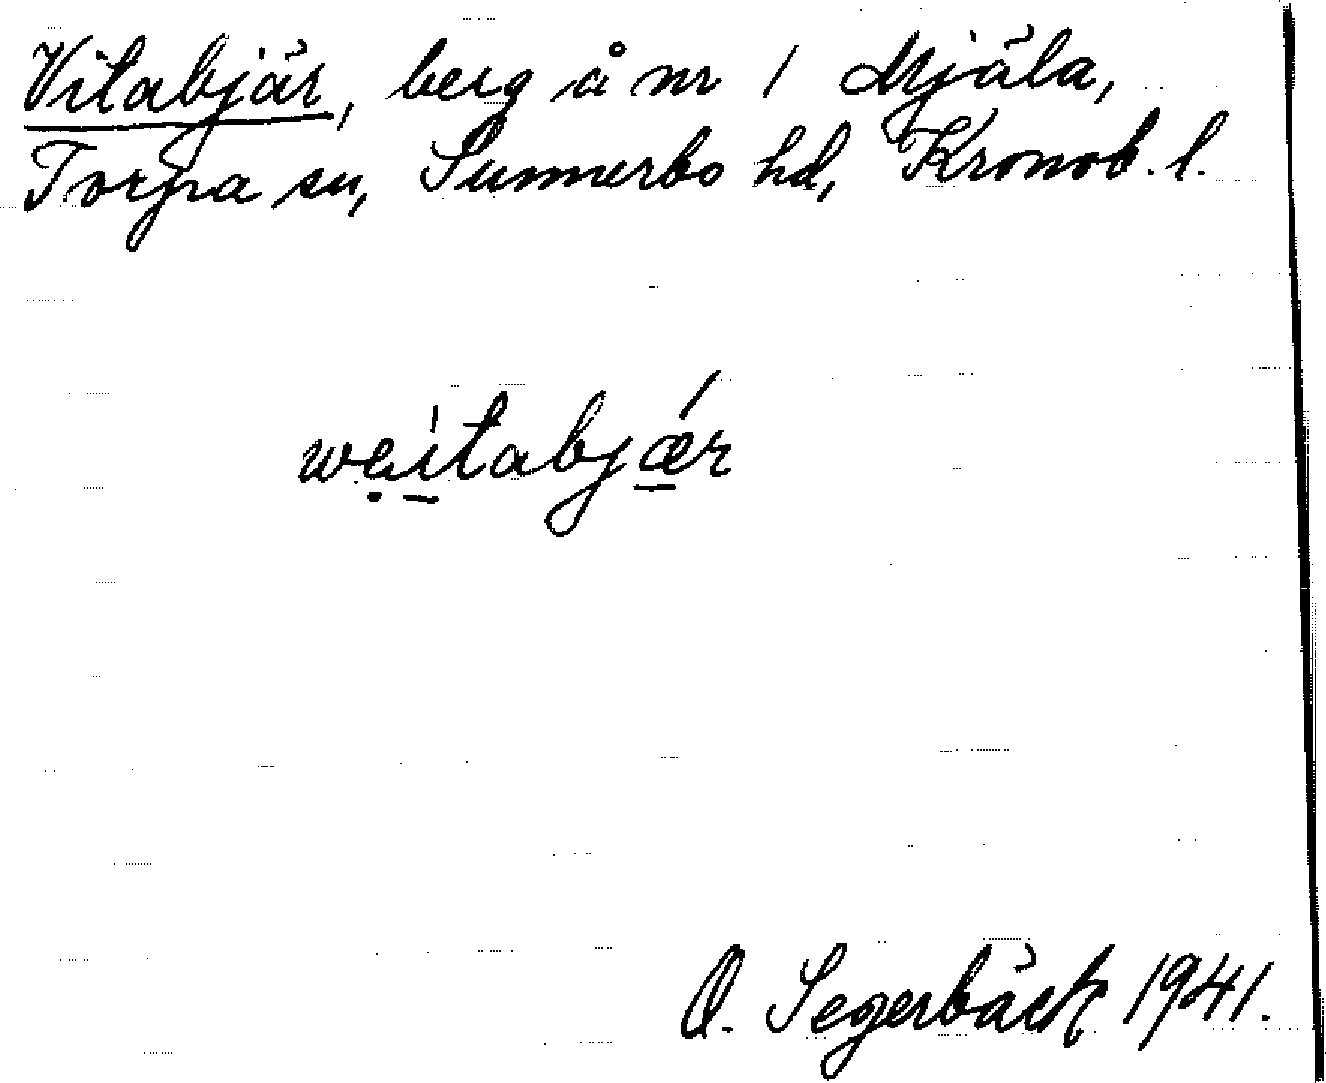 Vitabjär, berg å nr 1 Mjäla,
Torpa sn, Sunnerbo hd, Kronob. l.
weitabjǽr
O. Segerbäck 1941.